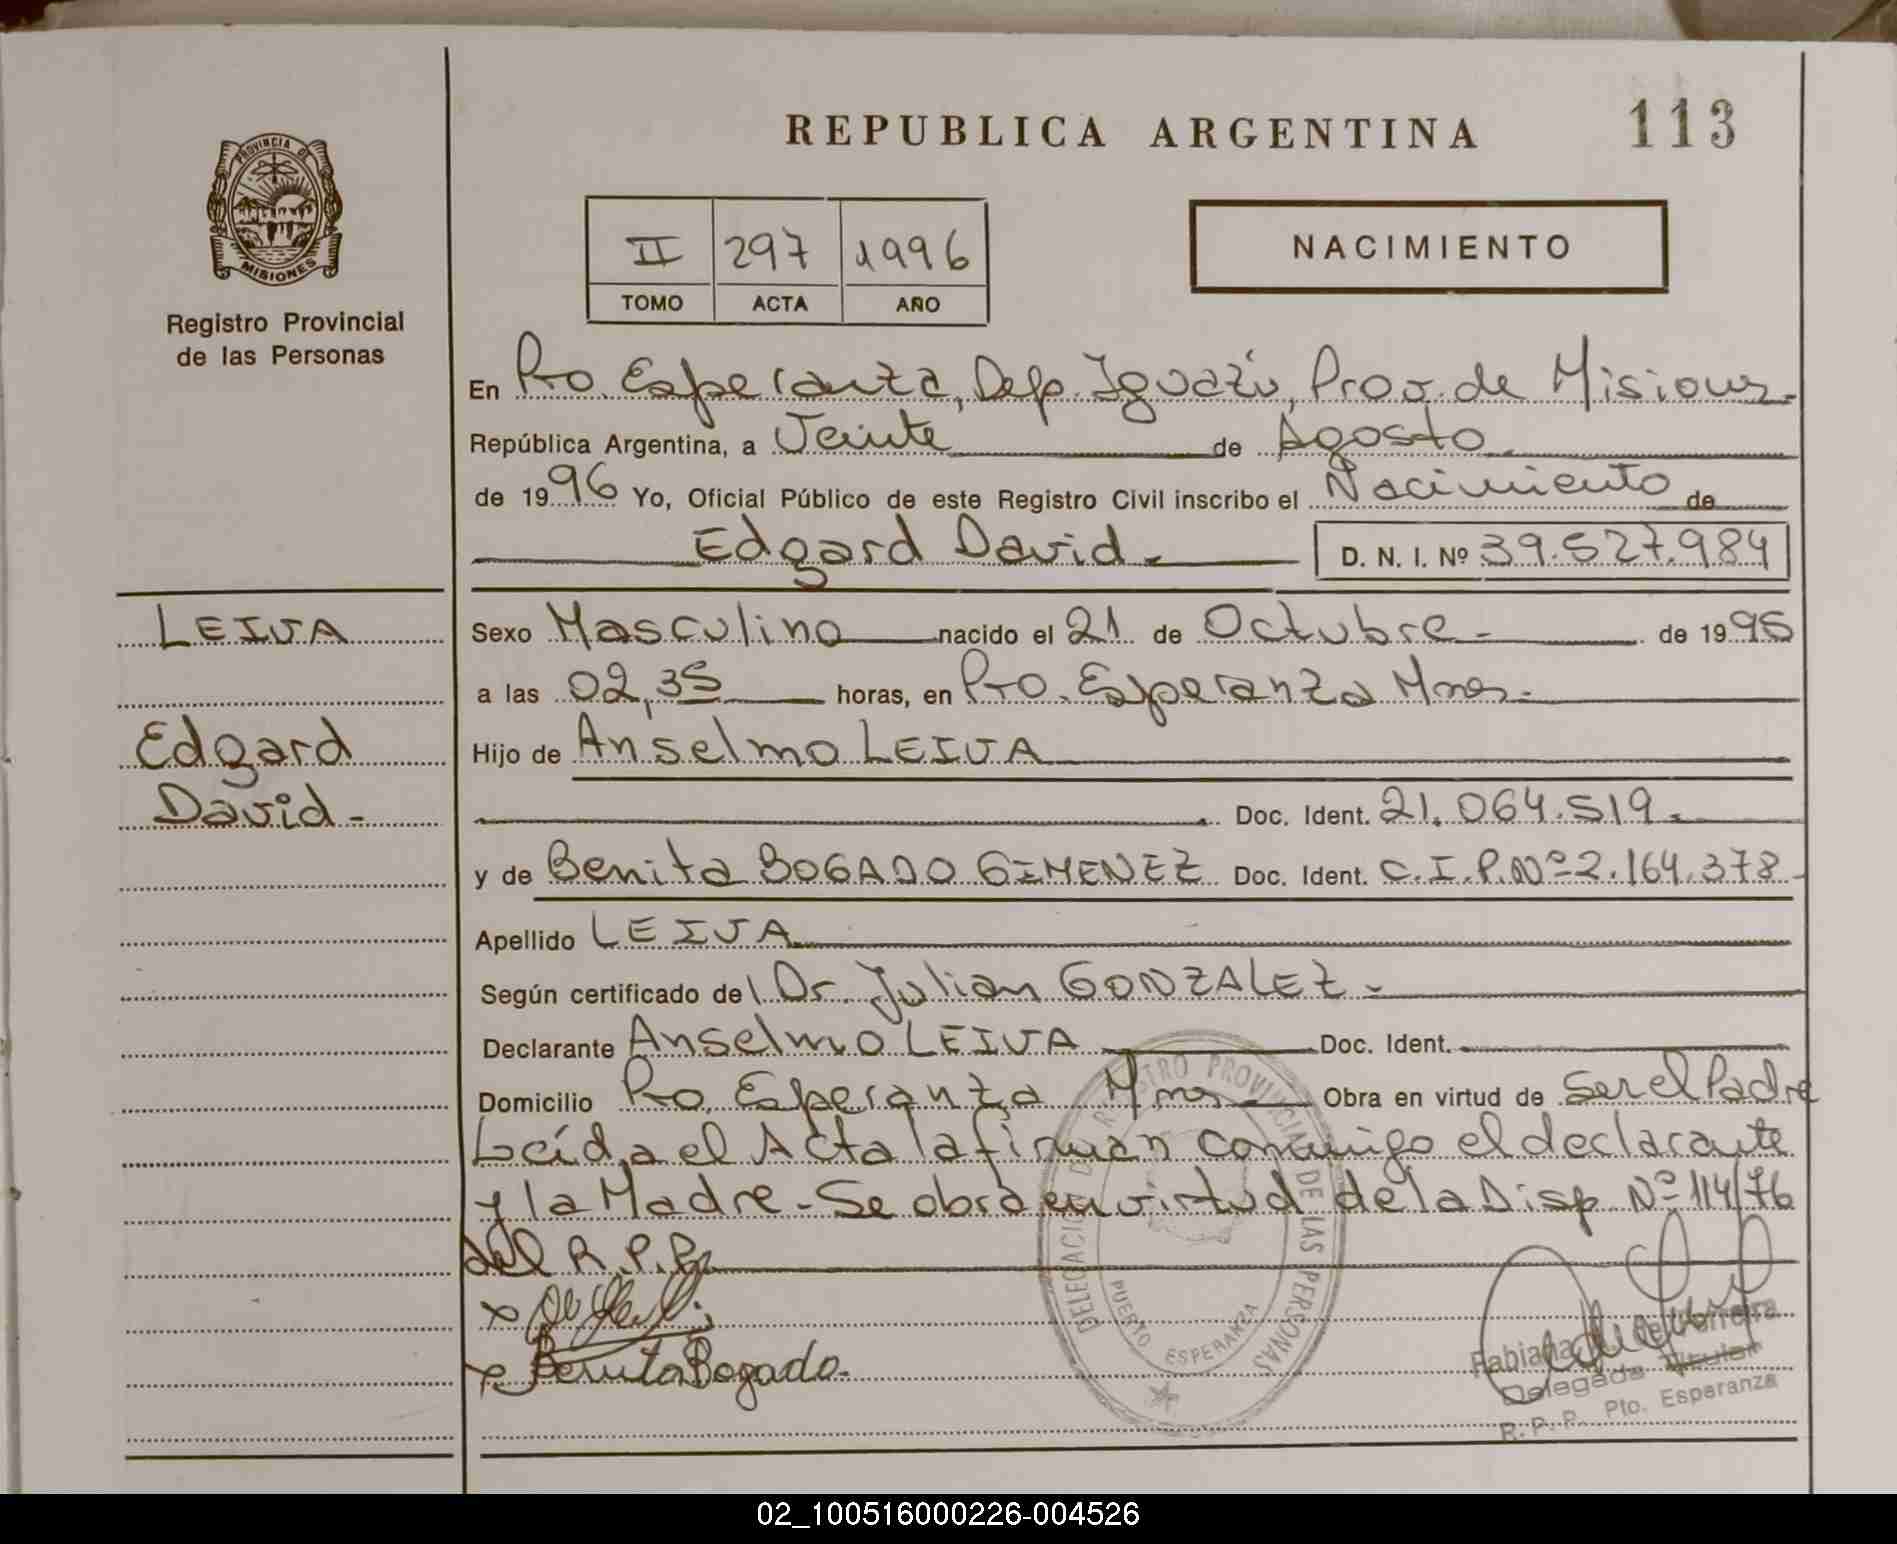 REPUBLICA ARGENTINA
113
PROVINCIA DE
MISIONES
Registro Provincial
de las Personas
II 297 1996
TOMO ACTA AÑO
NACIMIENTO
En Pto. Esperanza, Dep. Iguazú, Prov. de Misiones-
República Argentina, a Veinte de Agosto
de 1996 Yo, Oficial Público de este Registro Civil inscribo el Nacimiento de
Edgard David.- D. N. I. Nº 39.527.984
LEIVA
Edgard
David-
Sexo Masculino nacido el 21 de Octubre- de 1995
a las 02,35 horas, en Pto. Esperanza Mnes-
Hijo de Anselmo LEIVA
Doc. Ident. 21.064.519.-
y de Benita BOGADO GIMENEZ Doc. Ident. C.I.P.Nº 2.164.378-
Apellido LEIVA
Según certificado del Dr. Julian GONZALEZ-
Declarante Anselmo LEIVA Doc. Ident.
Domicilio Pto. Esperanza Mnes- Obra en virtud de Ser el Padre
Leída el Acta la firman conmigo el declarante
y la Madre-Se obra en virtud de la Disp. Nº 114/76
del R.P.P.
x
x Benita Bogado.
DELEGACION DEL REGISTRO PROVINCIAL DE LAS PERSONAS
PUERTO ESPERANZA
Fabiana de Ferreira
Delegada Titular
R. P. P. Pto. Esperanza
02_100516000226-004526